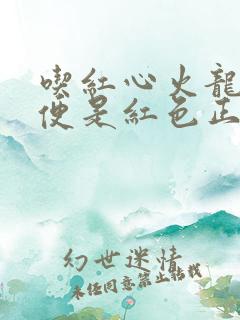 喫紅心火龍
便是紅色正
幻世迷情
未经同意禁止转载